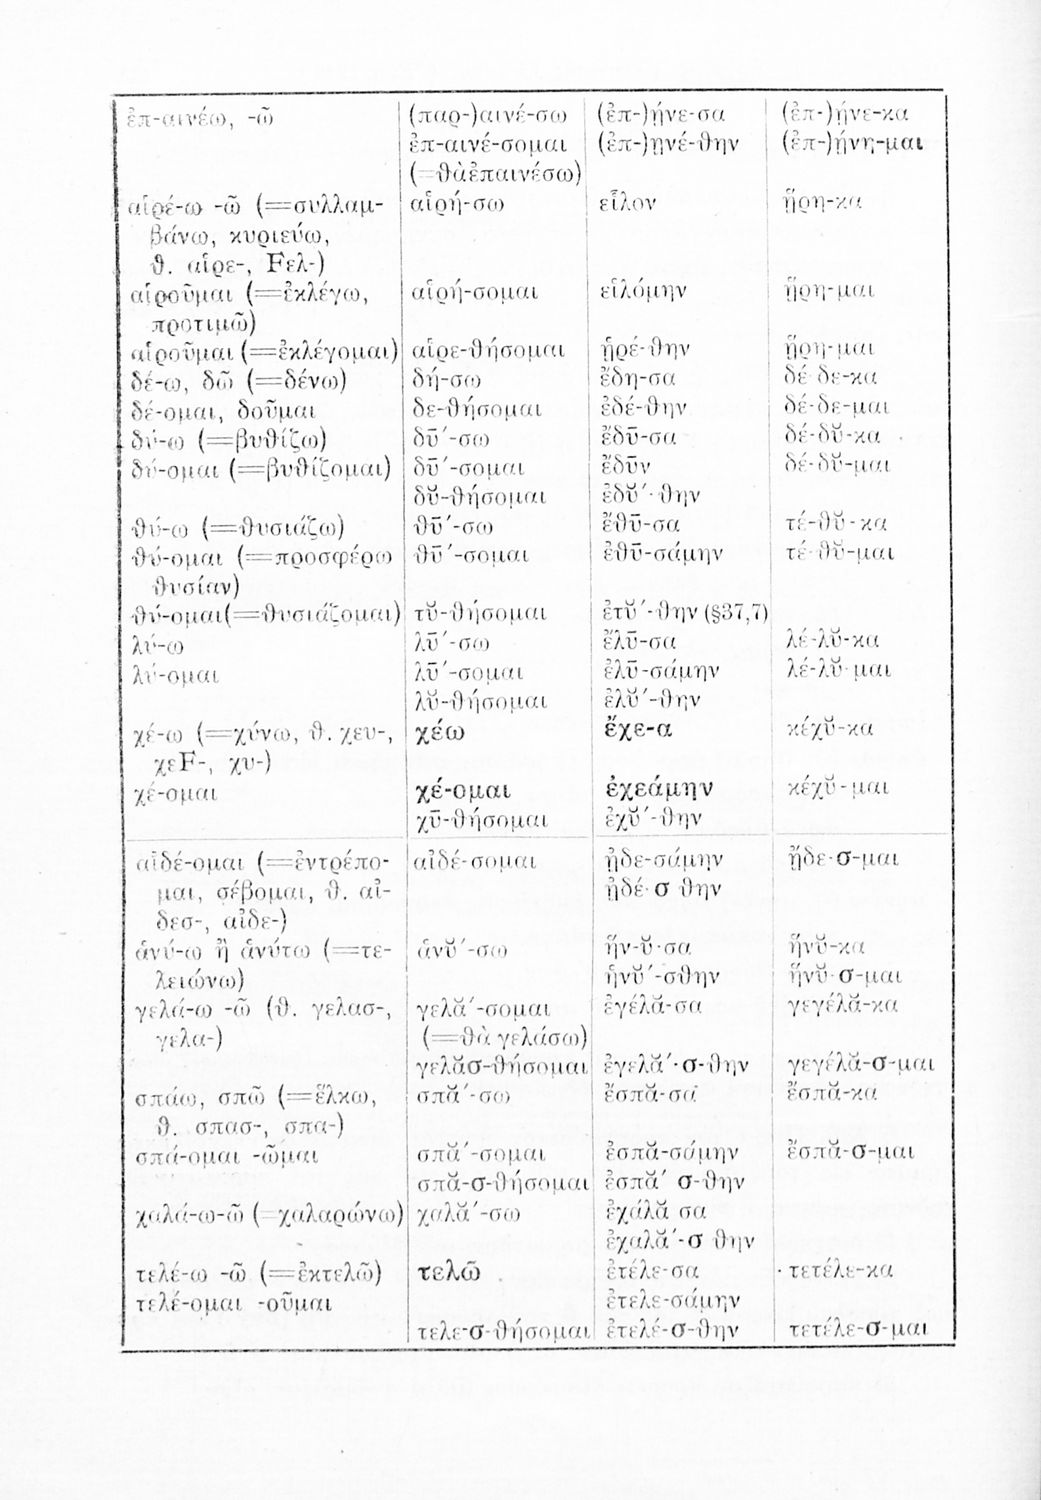 ἐπ-αινέω, -ῶ (παρ-)αινέ-σω (ἐπ-)ήνε-σα (ἐπ-)ήνε-κα
ἐπ-αινέ-σομαι (ἐπ-)ηνέ-θην (ἐπ-)ήνη-μαι
(=θὰ ἐπαινέσω)
αἱρέ-ω -ῶ (=συλλαμ- αἱρή-σω εἷλον ᾕρη-κα
βάνω, κυριεύω,
θ. αἱρε-, Fελ-)
αἱροῦμαι (=ἐκλέγω, αἱρή-σομαι εἱλόμην ᾕρη-μαι
προτιμῶ)
αἱροῦμαι (=ἐκλέγομαι) αἱρε-θήσομαι ᾑρέ-θην ᾕρη-μαι
δέ-ω, δῶ (=δένω) δή-σω ἔδη-σα δέ-δε-κα
δέ-ομαι, δοῦμαι δε-θήσομαι ἐδέ-θην δέ-δε-μαι
δύ-ω (=βυθίζω) δῡ́-σω ἔδῡ-σα δέ-δῠ-κα
δύ-ομαι (=βυθίζομαι) δῡ́-σομαι ἔδῡν δέ-δῠ-μαι
δῠ-θήσομαι ἐδῠ́-θην
θύ-ω (=θυσιάζω) θῡ́-σω ἔθῡ-σα τέ-θῠ-κα
θύ-ομαι (=προσφέρω θῡ́-σομαι ἐθῡ-σάμην τέ-θῠ-μαι
θυσίαν)
θύ-ομαι(=θυσιάζομαι) τῠ-θήσομαι ἐτῠ́-θην (§37,7)
λύ-ω λῡ́-σω ἔλῡ-σα λέ-λῠ-κα
λύ-ομαι λῡ́-σομαι ἐλῡ-σάμην λέ-λῠ-μαι
λῠ-θήσομαι ἐλῠ́-θην
χέ-ω (=χύνω, θ. χευ-, χέω ἔχε-α κέχῠ-κα
χεF-, χυ-)
χέ-ομαι χέ-ομαι ἐχεάμην κέχῠ-μαι
χῠ-θήσομαι ἐχῠ́-θην
αἰδέ-ομαι (=ἐντρέπο- αἰδέ-σομαι ᾐδε-σάμην ᾔδε-σ-μαι
μαι, σέβομαι, θ. αἰ- ᾐδέ-σ-θην
δεσ-, αἰδε-)
ἁνύ-ω ἢ ἁνύτω (=τε- ἁνῠ́-σω ἥν-ῠ-σα ἥνῠ-κα
λειώνω) ἡνῠ́-σθην ἥνῠ-σ-μαι
γελά-ω -ῶ (θ. γελασ-, γελᾰ́-σομαι ἐγέλᾰ-σα γεγέλᾰ-κα
γελα-) (=θὰ γελάσω)
γελᾰσ-θήσομαι ἐγελᾰ́-σ-θην γεγέλᾰ-σ-μαι
σπάω, σπῶ (=ἕλκω, σπᾰ́-σω ἔσπᾰ-σα ἔσπᾰ-κα
θ. σπασ-, σπα-)
σπά-ομαι -ῶμαι σπᾰ́-σομαι ἐσπᾰ-σάμην ἔσπᾰ-σ-μαι
σπᾰ-σ-θήσομαι ἐσπᾰ́-σ-θην
χαλά-ω-ῶ (=χαλαρώνω) χαλᾰ́-σω ἐχάλᾰ σα
ἐχαλᾰ́-σ θην
τελέ-ω -ῶ (=ἐκτελῶ) τελῶ ἐτέλε-σα τετέλε-κα
τελέ-ομαι -οῦμαι ἐτελε-σάμην
τελε-σ-θήσομαι ἐτελέ-σ-θην τετέλε-σ-μαι